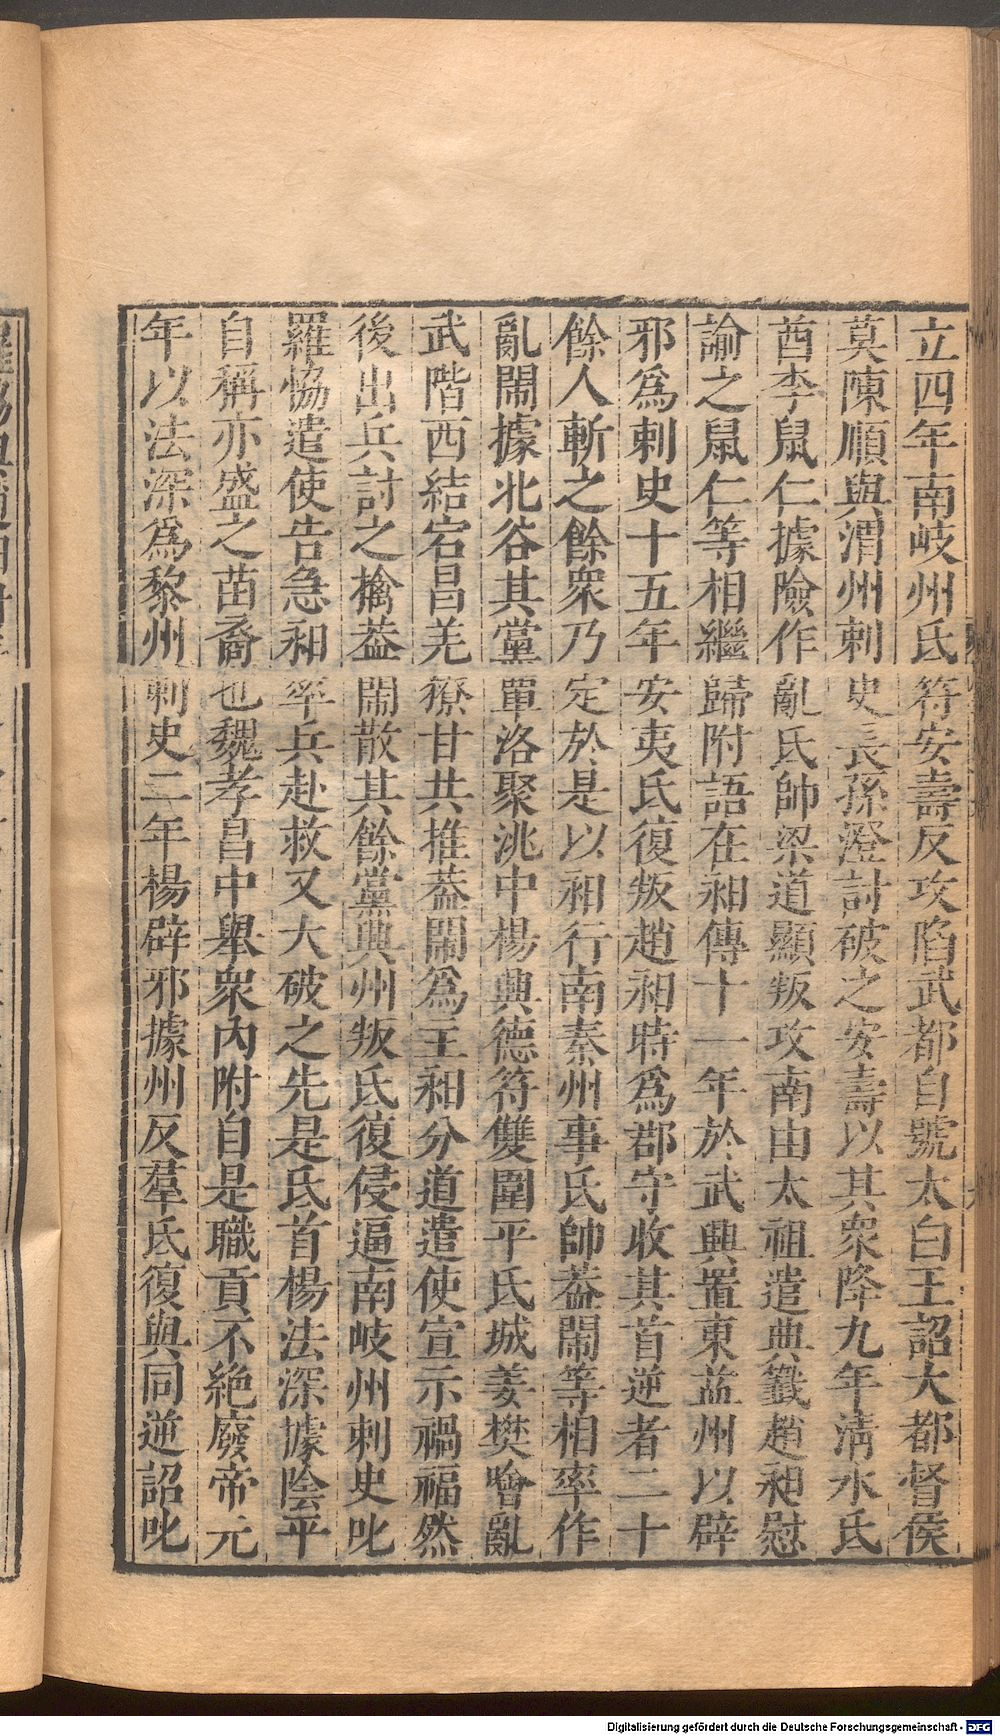 立四年南岐州氐符安壽反攻陷武都自號太白王詔大都督侯
莫陳順與渭州刺史長孫澄討破之安壽以其衆降九年清水氐
酋李鼠仁據險作亂氐帥梁道顯叛攻南由太祖遣典籤趙昶慰
諭之鼠仁等相繼歸附語在昶傳十一年於武興置東益州以辟
邪爲刺史十五年安夷氐復叛趙昶時爲郡守收其首逆者二十
餘人斬之餘衆乃定於是以昶行南秦州事氐帥葢閙等相率作
亂閙據北谷其黨單洛聚洮中楊興德符雙圍平氐城姜樊噲亂
武階西結宕昌羌獠甘共推葢閙爲王昶分道遣使宣示禍福然
後出兵討之擒葢閙散其餘黨興州叛氐復侵逼南岐州刺史叱
羅恊遣使告急昶率兵赴救又大破之先是氐首楊法深據陰平
自稱亦盛之苗裔也魏孝昌中舉衆內附自是職貢不絶廢帝元
年以法深爲黎州刺史二年楊辟邪據州反羣氐復與同逆詔叱
Digitalisierung gefördert durch die Deutsche Forschungsgemeinschaft - DFG